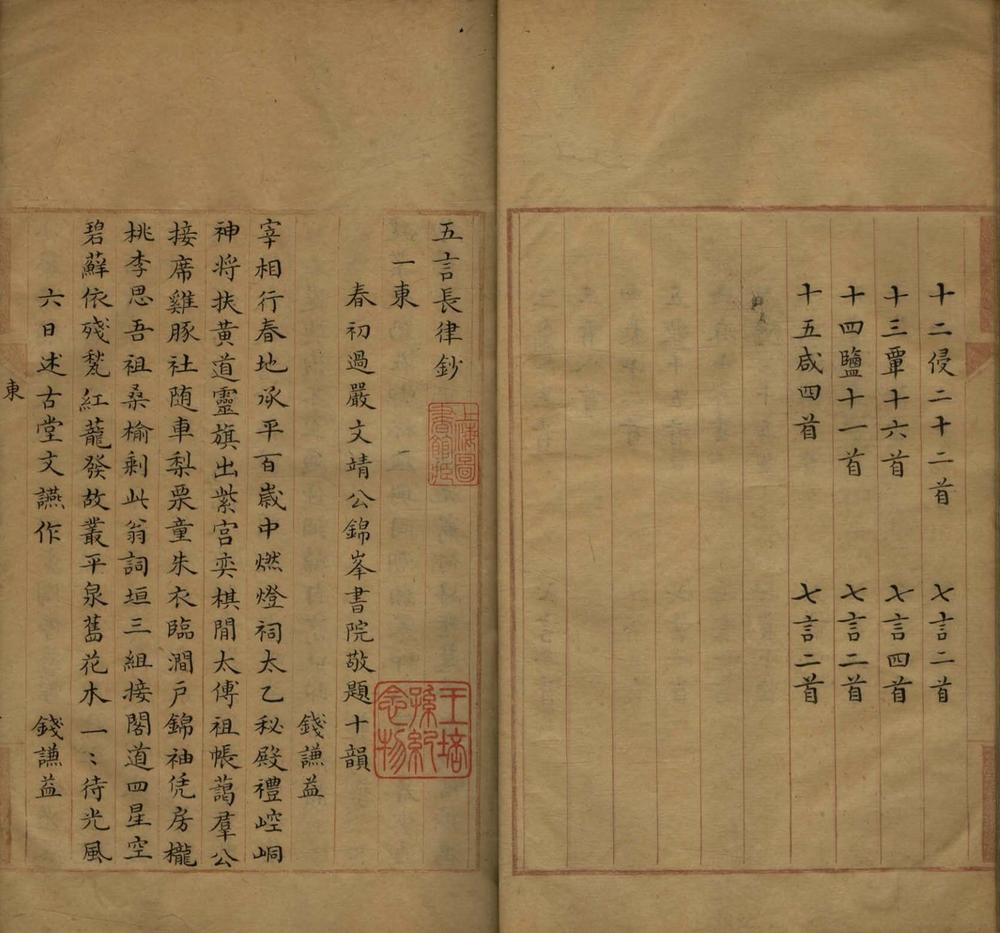 十二侵二十二首 七言二首
十三覃十六首 七言四首
十四鹽十一首 七言二首
十五咸四首 七言二首
五言長律鈔
上海圖書館藏
一東
王培孫紀念物
春初過嚴文靖公錦峯書院敬題十韻
錢謙益
宰相行春地承平百歲中燃燈祠太乙秘殿禮崆峒
神將扶黃道靈旗出紫宮奕棋閒太傅祖帳藹羣公
接席雞豚社随車梨栗童朱衣臨澗戶錦袖凭房櫳
桃李思吾祖桑榆剩此翁詞垣三組接閣道四星空
碧蘚依殘甃紅蘢發故叢平泉舊花木一〻待光風
六日述古堂文讌作 錢謙益
東